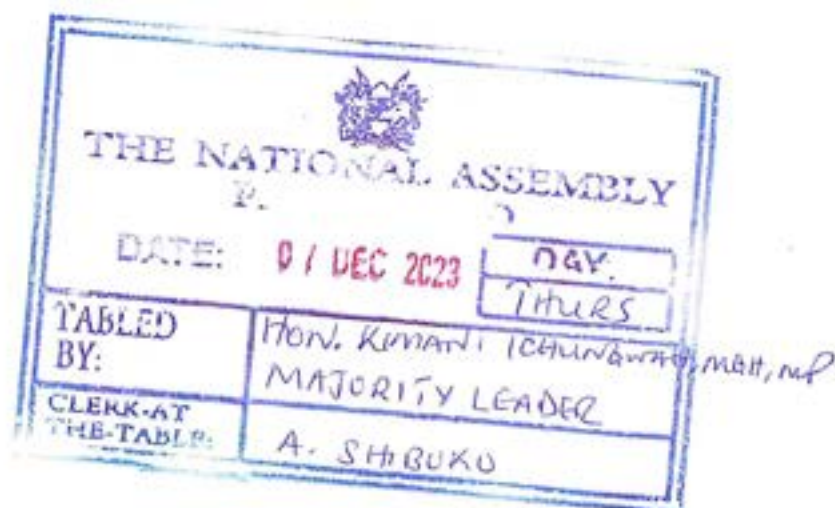 THE NATIONAL ASSEMBLY
P.
DATE: 07 DEC 2023 DAY.
THURS
TABLED BY: HON. KIMANI ICHUNGWAH, MGH, MP
MAJORITY LEADER
CLERK-AT THE-TABLE: A. SHIBUKO